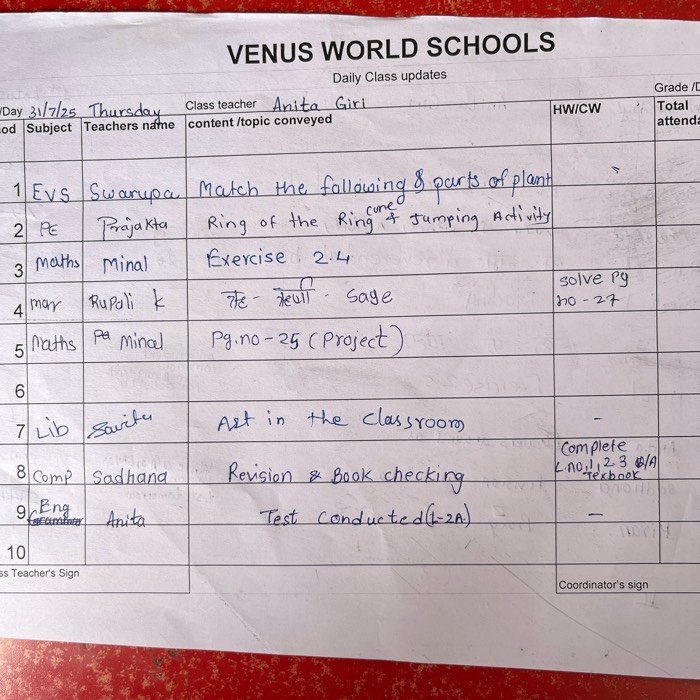 VENUS WORLD SCHOOLS
Daily Class updates
Grade /D
/Day 31/7/25 Thursday Class teacher Anita Giri HW/CW Total
od Subject Teachers name content /topic conveyed attenda
1 EVS Swarupa Match the following & parts of plant
2 PE Prajakta Ring of the Ring cone & Jumping Activity
3 maths Minal Exercise 2.4
4 mar Rupali k Sage solve pg no - 27
5 Maths Minal Pg.no - 25 (Project)
6
7 Lib Savita Art in the classroom -
8 Comp Sadhana Revision & Book checking Complete L.no. 1, 2 3 Q/A Texbook
9 Eng Anita Test Conducted (1-2A) -
10
ss Teacher's Sign Coordinator's sign